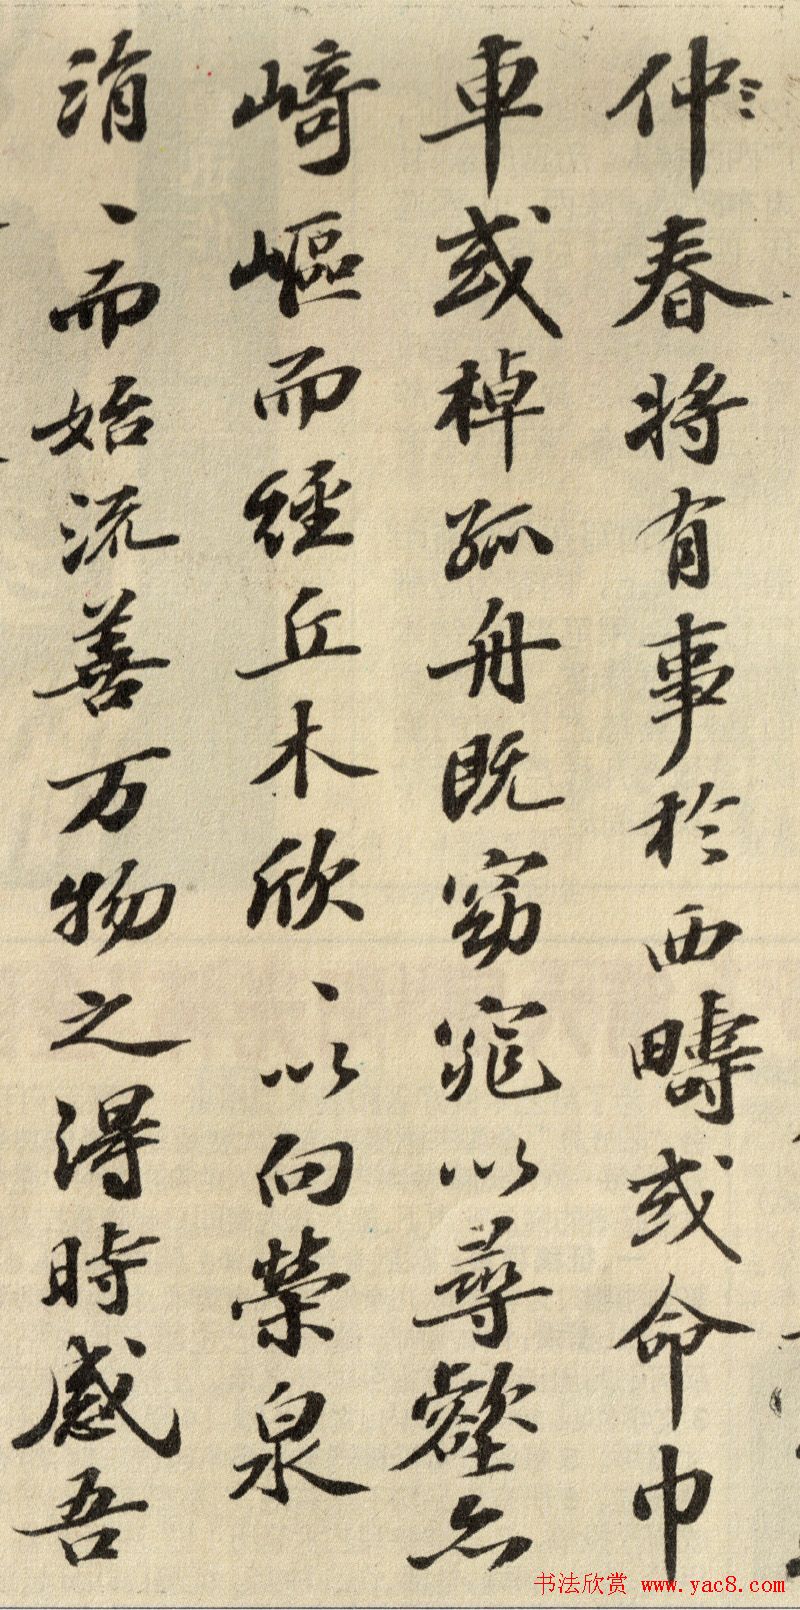 仲春将有事於西疇或命巾
車或棹孤舟既窈窕以尋壑亦
崎嶇而經丘木欣、以向榮泉
涓、而始流善万物之得時感吾
书法欣赏 www.yac8.com